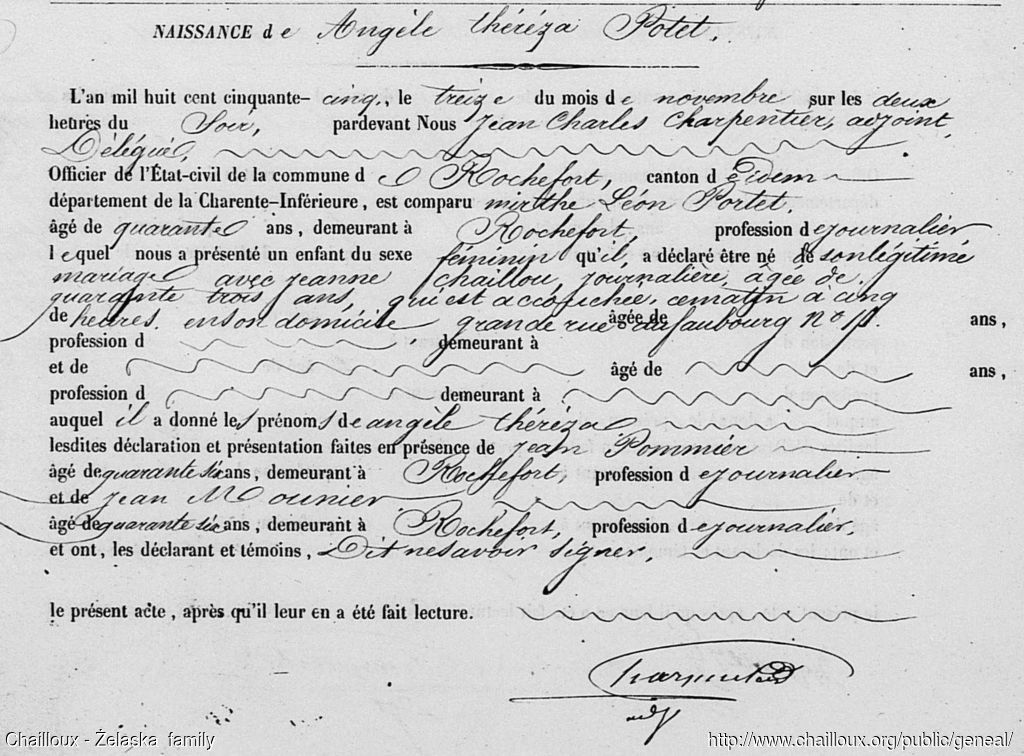 NAISSANCE de Angèle théréza Potet.
L'an mil huit cent cinquante-cinq, le treize du mois de novembre sur les deux
heures du Soir, pardevant Nous Jean Charles Charpentier, adjoint,
Délégué,
Officier de l'État-civil de la commune de Rochefort, canton d'eIdem
département de la Charente-Inférieure, est comparu mirthe Léon Portet.
âgé de quarante ans, demeurant à Rochefort, profession de journalier
lequel nous a présenté un enfant du sexe féminin qu'il, a déclaré être né de son légitime
mariage avec Jeanne Chaillou, journalière, âgée de
quarante trois ans, qui est accouchée, ce matin à cinq
de heures. en son domicile grande rue du faubourg no âgée de ans,
profession d demeurant à
et de âgé de ans,
profession d demeurant à
auquel il a donné les prénoms de angèle théréza
lesdites déclaration et présentation faites en présence de Jean Pommier
âgé de quarante six ans, demeurant à Rochefort, profession de journalier
et de Jean Mounier
âgé de quarante six ans, demeurant à Rochefort, profession de journalier.
et ont, les déclarant et témoins, Dit ne savoir signer.
le présent acte, après qu'il leur en a été fait lecture.
Charpentier
adj
Chailloux - Želaska family http://www.chailloux.org/public/geneal/